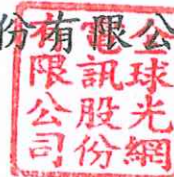 份有限公
球光網
訊股份
有限公司